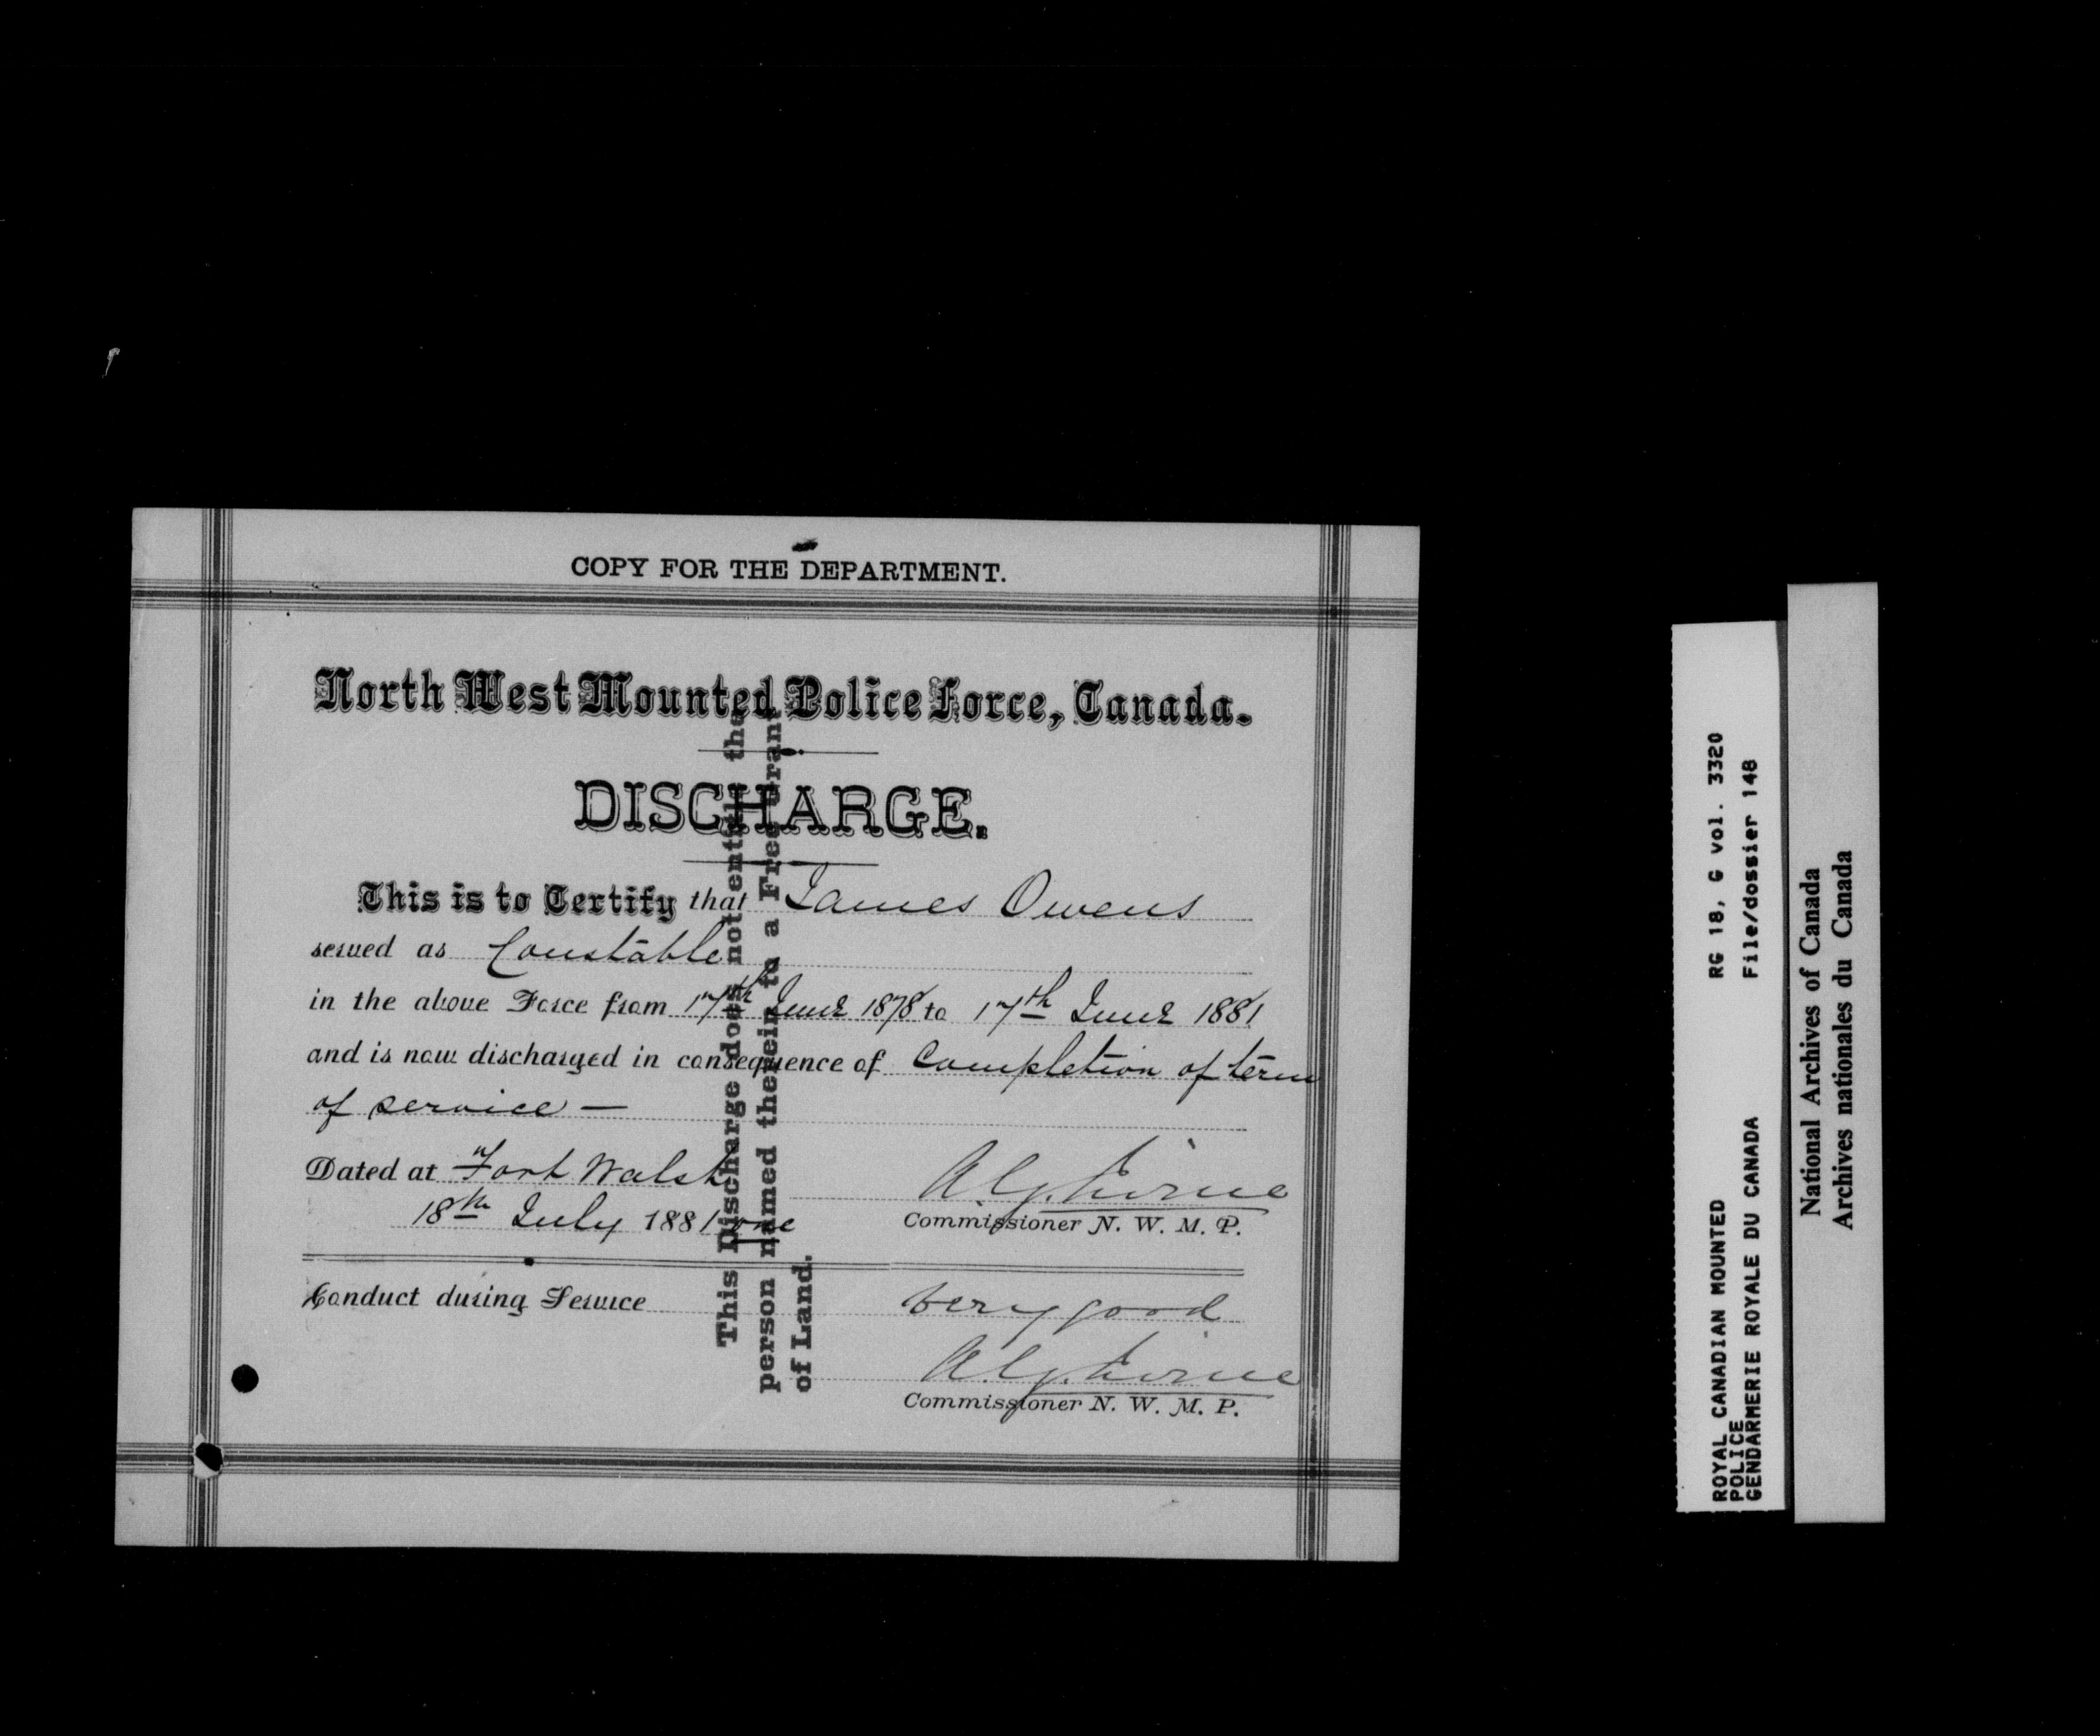 COPY FOR THE DEPARTMENT.
North West Mounted Police Force, Canada.
DISCHARGE.
This is to Certify that James Owens
served as Constable
in the above Force from 17th June 1878 to 17th June 1881
and is now discharged in consequence of Completion of term
of service —
Dated at Fort Walsh
18th July 1881 one
A.G. Irvine
Commissioner N. W. M. P.
Conduct during Service very good
A.G. Irvine
Commissioner N. W. M. P.
This Discharge does not entitle the
person named therein to a Free Grant
of Land.
RG 18, G vol. 3320
File/dossier 148
ROYAL CANADIAN MOUNTED
POLICE
GENDARMERIE ROYALE DU CANADA
National Archives of Canada
Archives nationales du Canada